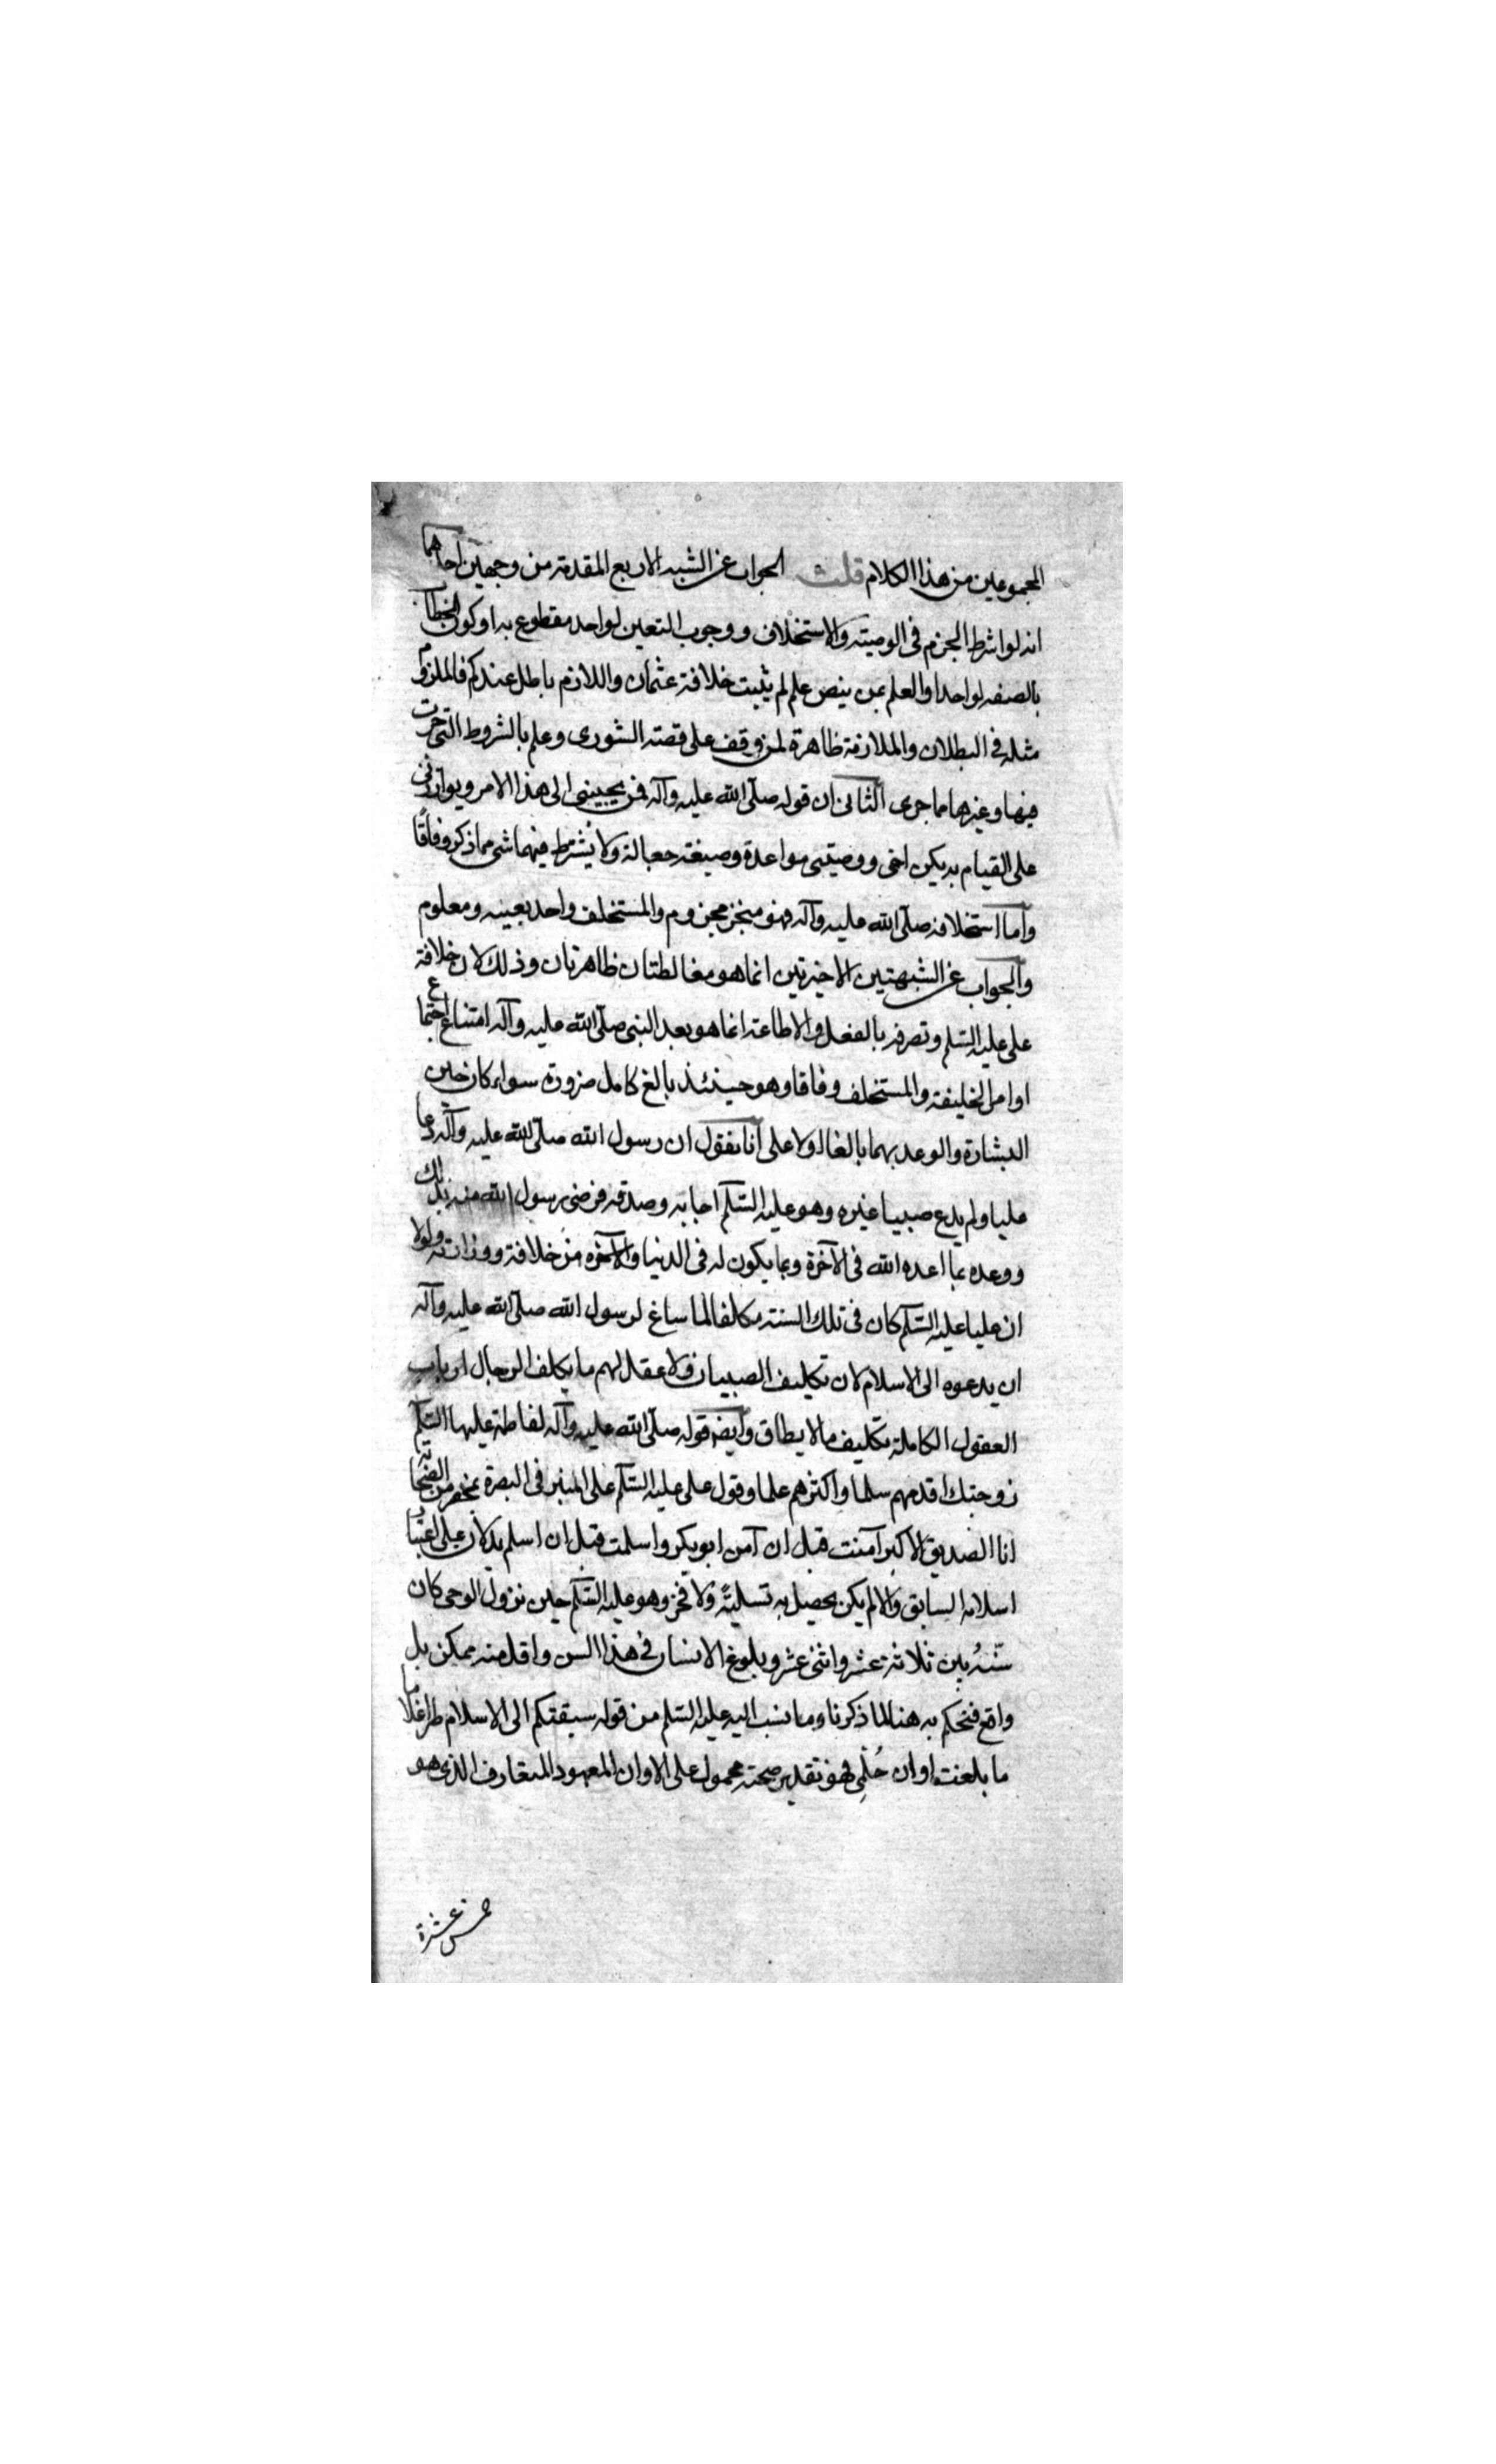 المجموعين من هذا الكلام قلت الجواب عن الشبه الاربع المقدمة من وجهين احدهما
انه لو اشرط الجزم في الوصيته والاستخلاف ووجوب التعين لواحد مقطوع به او كون الخطاب
بالصفه لواحد والعلم بمن ينص علم لم يثبت خلافة عثمان واللازم باطل عندكم فالملزوم
مثله في البطلان والملازمة ظاهرة لمن وقف على قصته الشورى وعلم بالشروط التي جرت
فيها وغيرها مما جرى الثاني ان قوله صلى الله عليه وآله فمن يجيبني الى هذا الامر ويوازرني
على القيام به يكن اخي ووصيتي مواعدة وصيغته جعالة ولا يشترط فيهما شي مما ذكر وفاقًا
واما استخلافه صلى الله عليه وآله فهو منجز مجزوم والمستخلف واحد بعينه ومعلوم
والجواب عن الشبهتين الاخيرتين انما هو مغالطتان ظاهرتان وذلك لان خلافة
علي عليه السلم وتصرفه بالفعل والاطاعة انما هو بعد النبي صلى الله عليه وآله امتناع اجتماع
اوامر الخليفة والمستخلف وفاقا وهو حينئذ بالغ كامل ضرورة سواء كان حين
البشارة والوعد بهما بالغا اولا على انا نقول ان رسول الله صلى الله عليه وآله دعا
عليا ولم يدع صبيا غيره وهو عليه السلم اجابه وصدقه فرضي رسول الله منه بذلك
ووعده بما اعده الله في الآخرة وبما يكون له في الدنيا والآخره من خلافة ووزارته ولولا
ان عليا عليه السلم كان في تلك السنة مكلفا لما ساغ لرسول الله صلى الله عليه وآله
ان يدعوه الى الاسلام لان تكليف الصبيان ولا عقل لهم ما يكلف الرجال ارباب
العقول الكاملة تكليف ما لا يطاق وايضا قوله صلى الله عليه وآله لفاطمة عليها السلم
زوجتك اقدمهم سلما واكثرهم علما وقول علي عليه السلم على المنبر في البصرة بمحضر من الصحابة
انا الصديق الاكبر آمنت قبل ان آمن ابو بكر واسلمت قبل ان اسلم يدلان على اعتبار
اسلامه السابق والا لم يكن يحصل به تسليةً ولا فخر وهو عليه السلم حين نزول الوحي كان
سنهُ بين ثلاثة عشر واثنى عشر وبلوغ الانسان في هذا السن واقل منه ممكن بل
واقع فنحكم به هنا لما ذكرنا وما نسب اليه عليه السلم من قوله سبقتكم الى الاسلام طرا غلاما
ما بلغت اوان حُلْمِي فهو بتقدير صحته محمول على الاوان المعهود المتعارف الذي هو
خمس عشرة